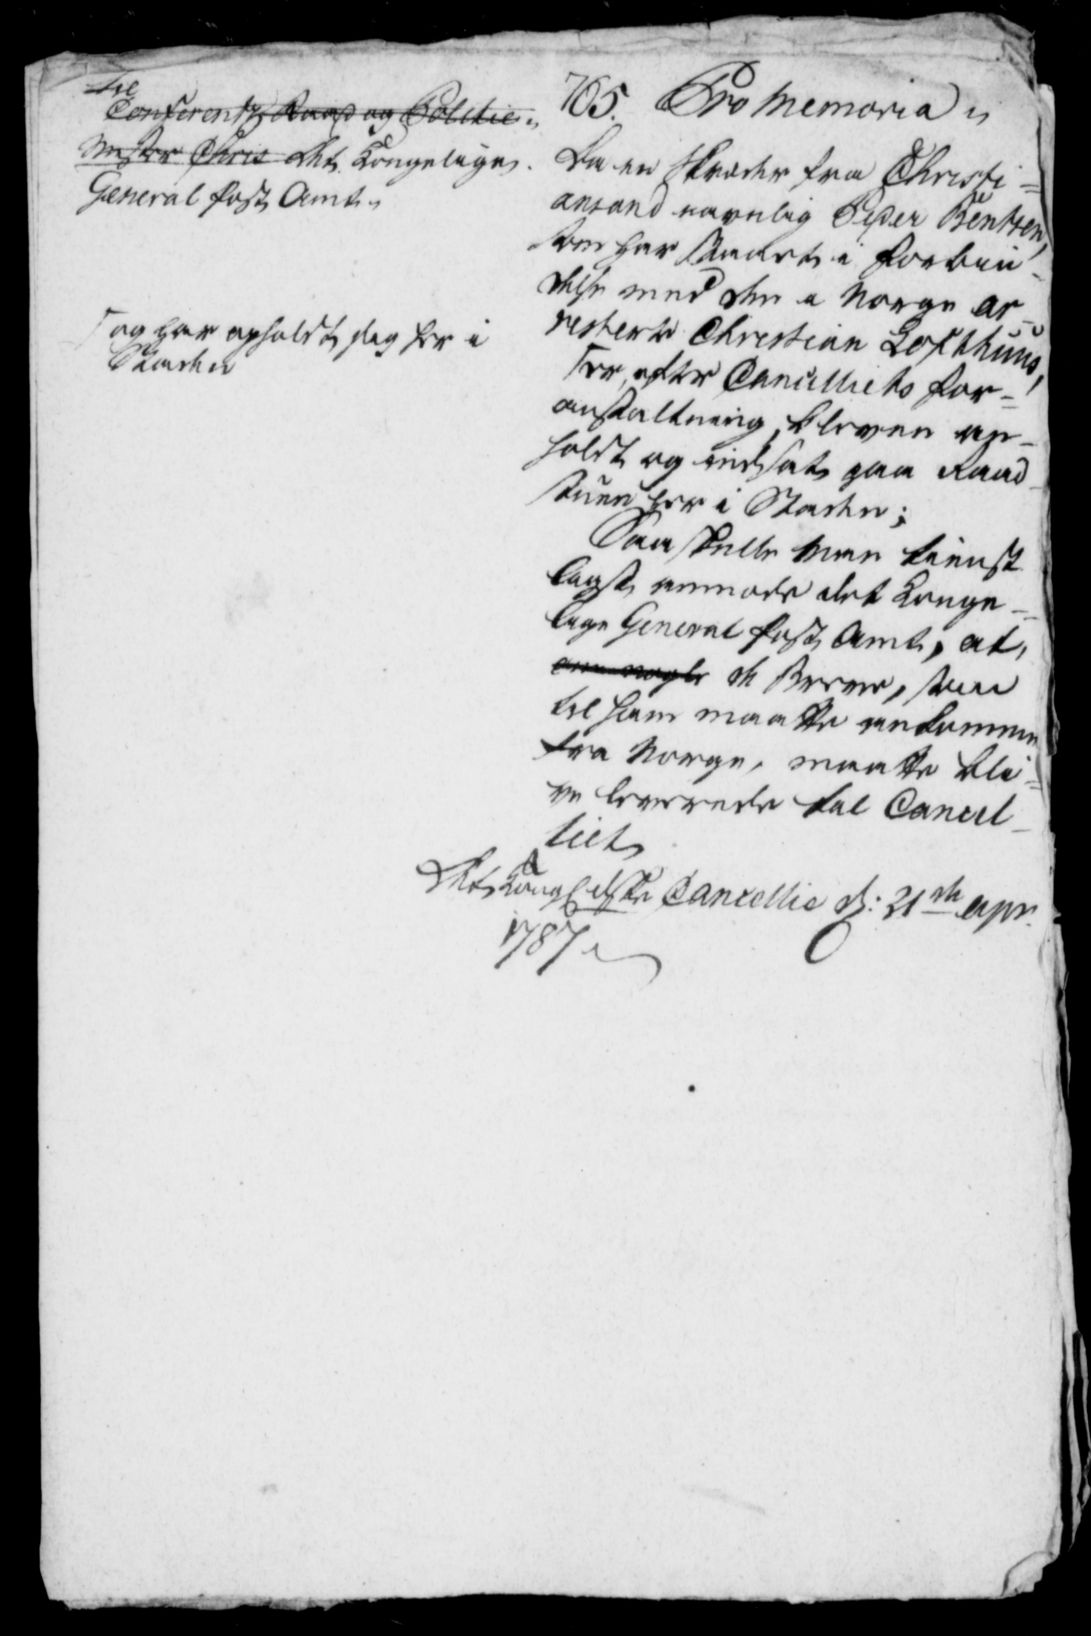 til
Conferentz Raad og Politie-
Mester Fleis det Kongelige
General Post Amt.
765. Pro Memoria
Da en Skræder fra Christi=
ansand navnlig Peder Bentzen,
som har staaet i Forbin=
delse med den i Norge ar=
resterte Christian Lofthuus,
⌈og har opholdt sig her i
Staden
⌈er, efter Cancelliets For=
anstaltning, bleven an=
holdt og indsat paa Raad
stuen her i Staden;
Saa skulle man tienst
ligst anmode det Konge=
lige General Post Amt, at,
om nogle de Breve, som
til ham maatte ankomme
fra Norge, maatte bli=
ve leverede til Cancel=
liet
Det Kongl. danske Cancellie d: 21de Apr.
1787